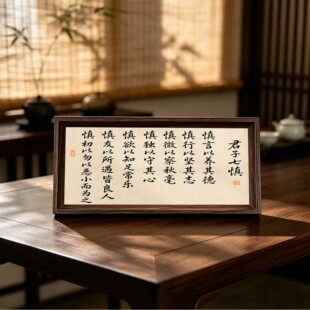 君子七慎
慎言以养其德
慎行以坚其志
慎微以察秋毫
慎独以守其心
慎欲以知足常乐
慎友以所遇皆良人
慎初以勿以恶小而为之